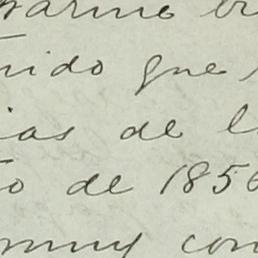 nido que
ias de l
to de 1856
muy con